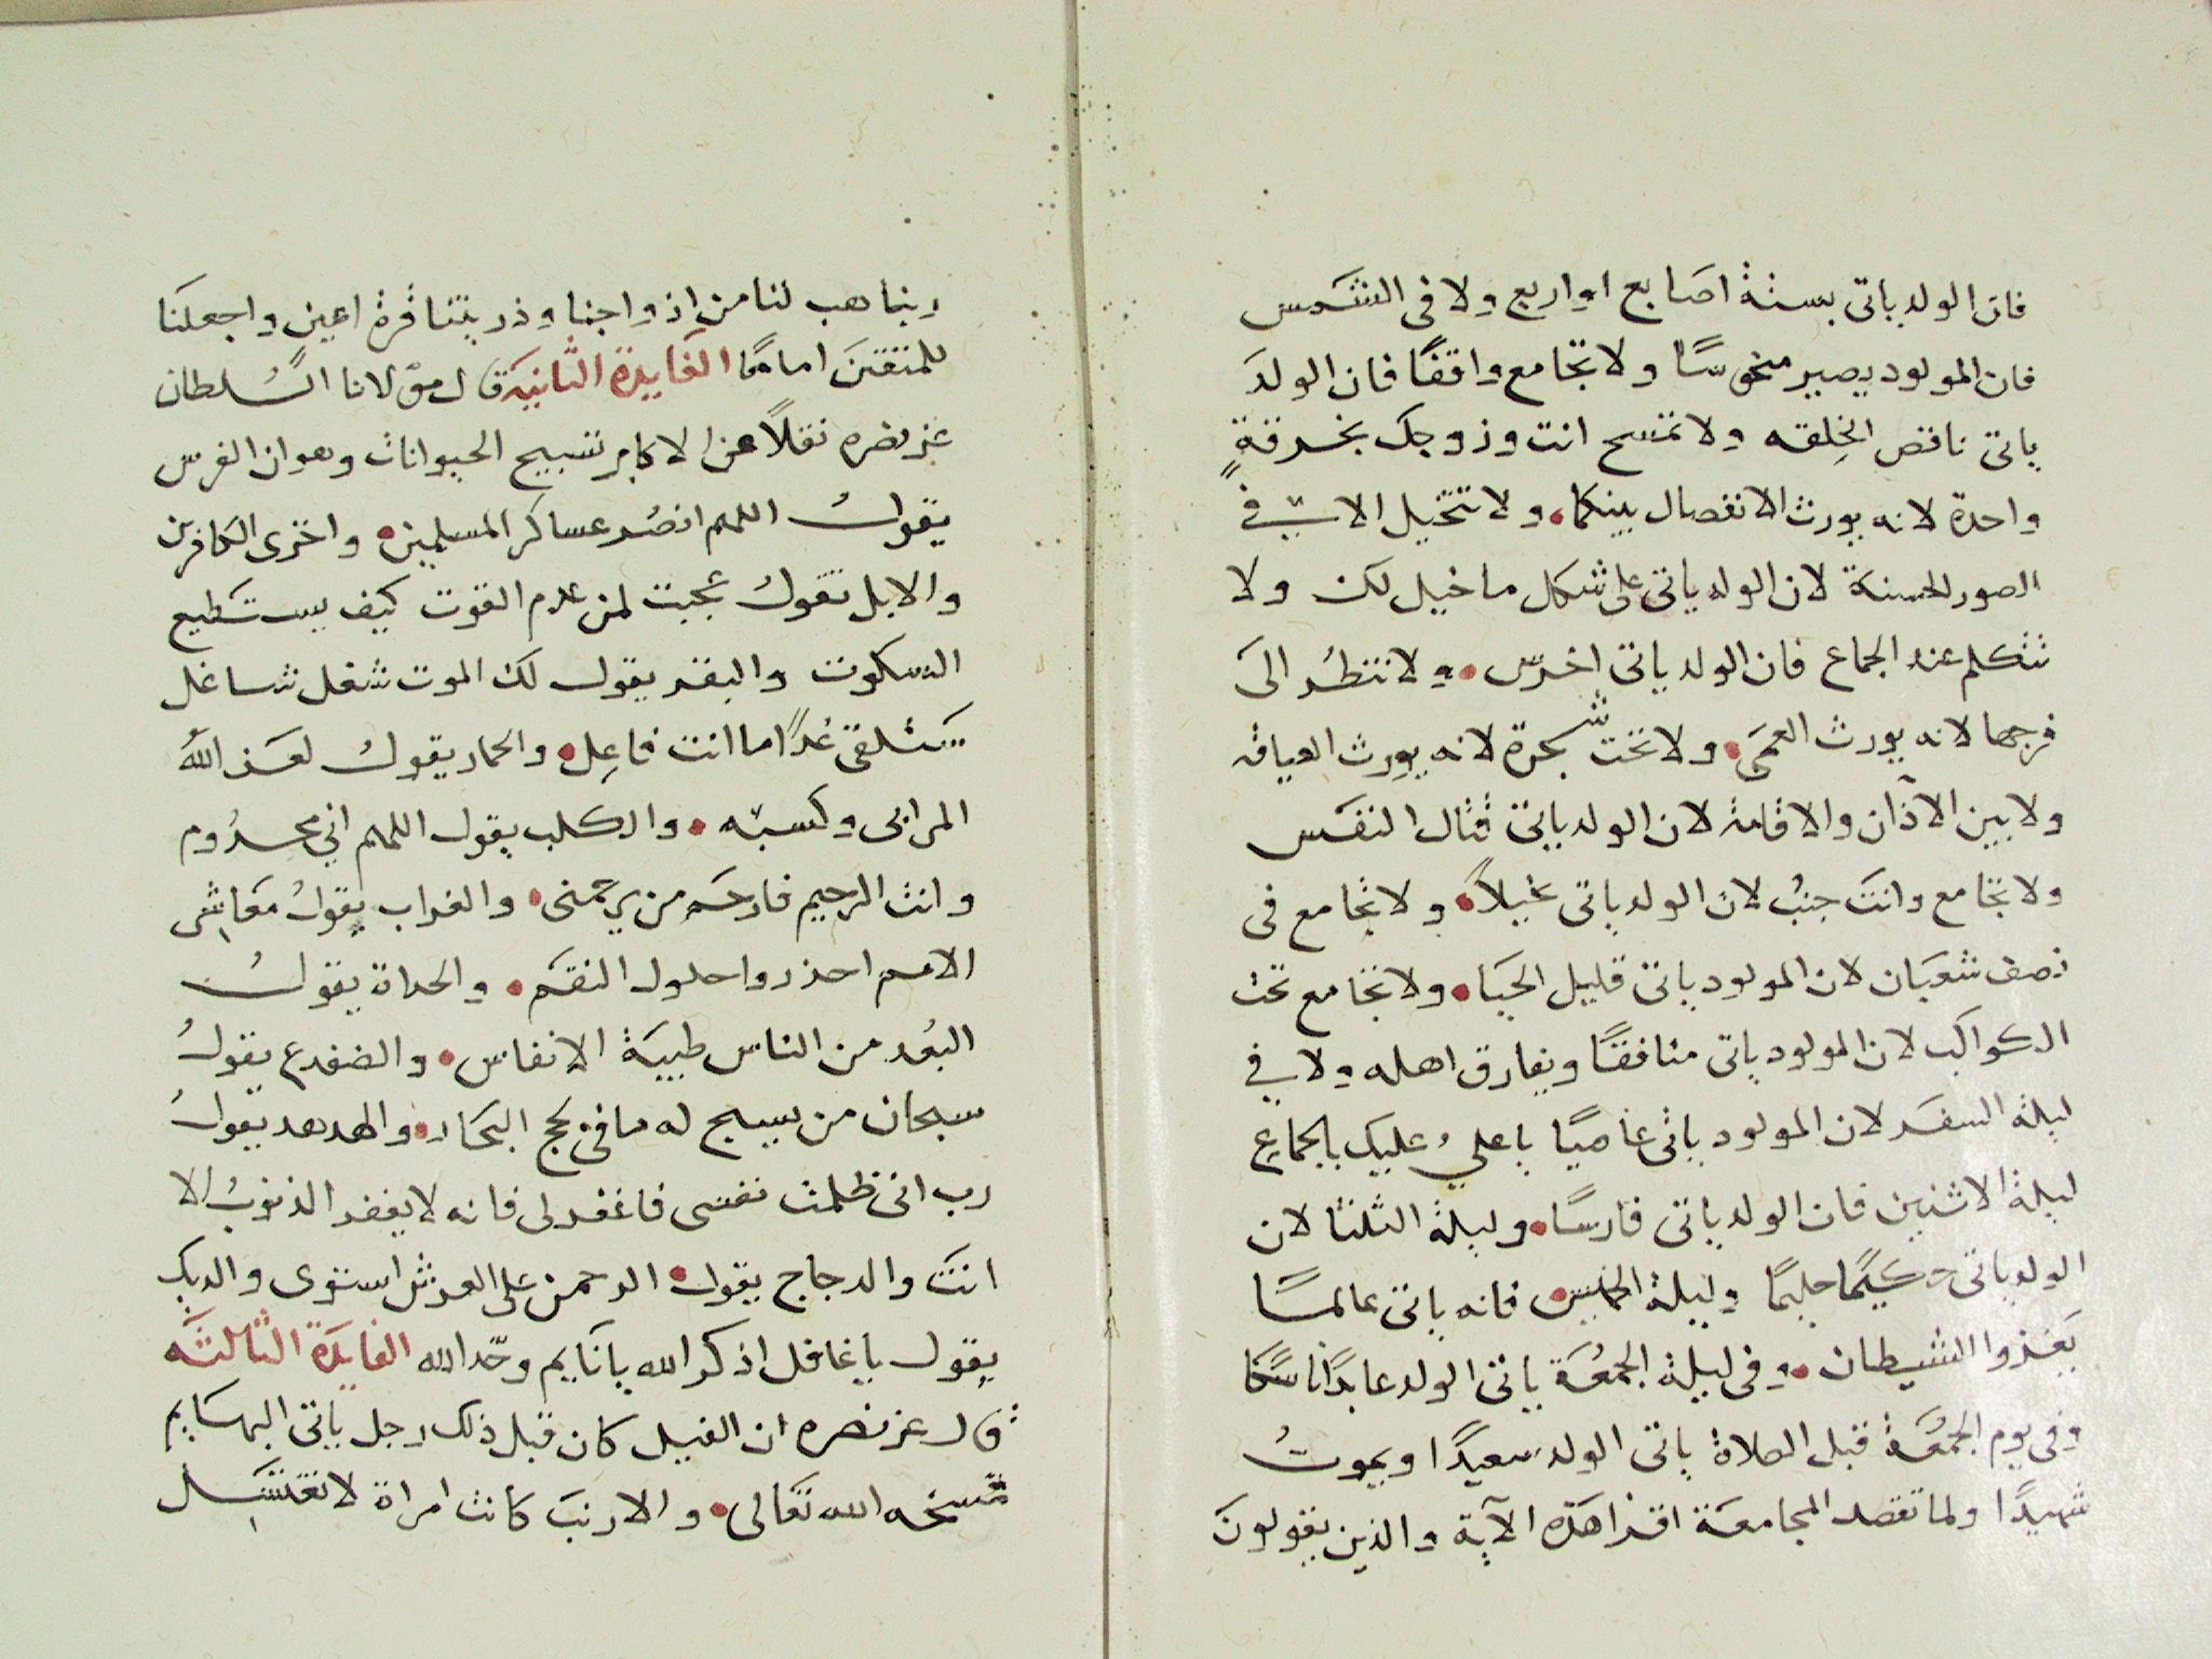 فان الولد ياتى بستة اصابع او اربع ولا فى الشمس
فان المولود يصير منحوسًا ولا تجامع واقفًا فان الولدَ
ياتى ناقص الخِلقه ولا تمسح انت وزوجك بخرقةٍ
واحدة لانه يورث الانفصال بينكما، ولا تتخيل الا فى
الصور الحسنة لان الولد ياتى على شكل ما خيل لك ولا
تتكلم عند الجماع فان الولد ياتى اخرس • ولا تنظُر الىَ
فرجها لانه يورث العمَى • ولا تحت شجرة لانه يورِث العياقه
ولا بين الآذان والاقامة لان الولد ياتى قتال النفَس
ولا تجامع وانتَ جنبُ لان الولد ياتى بخيلاً • ولا تجامع فى
نصف شعبَان لان المولود ياتى قليل الحيَا • ولا تجامع تحت
الكواكب لان المولود ياتى منافقًا ويفارق اهله ولا فى
ليلة السفَر لان المولود ياتى عاصيًا يا عليُ عليك بالجماعِ
ليلة الاثنين فان الولد ياتى فارسًا • وليلة الثلثا لان
الولد ياتى حكيمًا حليمًا وليلة الخميس • فانه ياتى عالمًا
يَغزوا الشيطان • وفى ليلة الجمعُة ياتى الولد عابدًا ناسكًا
وفى يوم الجمعَُة قبل الصلاة ياتى الولد سعيدًا ويموتُ
شهيدًا ولما تقصد المجامعَة اقرا هذه الآية والذين يقولونَ
ربنا هب لنا من ازواجنا وذريتنا قرة اعين واجعلنَا
للمتقينَ امامًا الفَايدة الثَّانيَه قال مولانا السُّلطان
عز نصره نقلاً عن الاكابر تسبيح الحيوانات وهو ان الفرس
يقولُ اللهم انصُر عساكر المسلمين • واخزى الكافرين
والابل تقولُ عجبت لمن عدم القوت كيف يستطيع
السكوت والبقر يقول لك الموت شغل شاغل
ستلقى غدًا ما انت فاعِل • والحمار يقولُ لعَن اللهُ
المرابى وكسبّه • والكلب يقول اللهم اني محرُوم
وانت الرحيم فارحَم من يرحمنى • والغراب يقولُ معَاشِر
الامم احذروا حلول النقَم • والحداة يقولُ
البُعد من الناس طيبَة الانفاس • والضفدع يقولُ
سبحان من يسبح له ما فى لجج البحَار • والهدهد يقولُ
رب انى ظلمت نفسى فاغفر لى فانه لا يغفر الذنوبُ الا
انتَ والدجاج يقول • الرحمن على العرش استوى والديك
يقول يا غافل اذكر الله يا نَايم وحّد الله الفَايدَة الثالثَه
قال عز نصره ان الفيل كان قبل ذلك رجل ياتى البهَايم
مسخه الله تعَالى • والارنبَ كانت امراة لا تغتَسِل